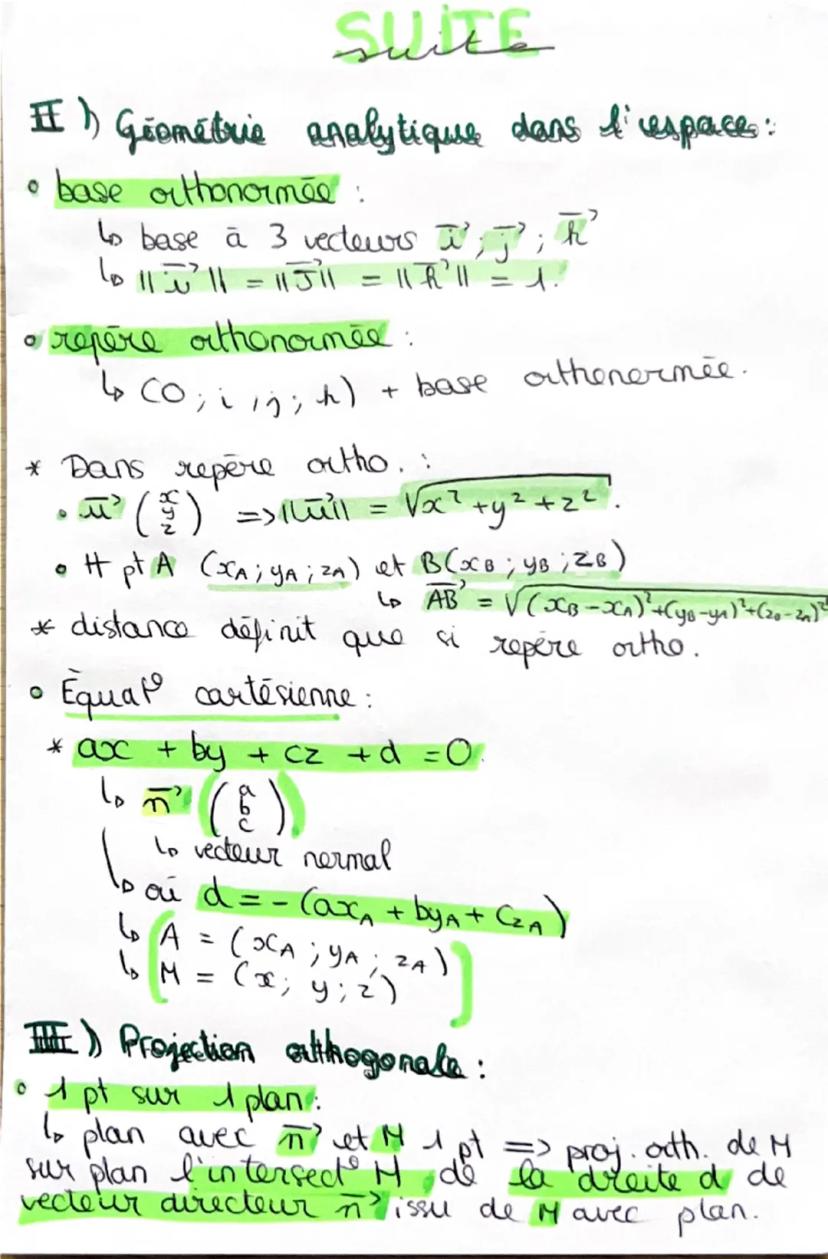 SUITE
suite
II) Géométrie analytique dans l'espace :
• base orthonormée :
↳ base à 3 vecteurs i⃗ ; j⃗ ; k⃗
↳ ||i⃗|| = ||j⃗|| = ||k⃗|| = 1.
• repère orthonormée :
↳ (O ; i ; j ; k) + base orthonormée.
* Dans repère ortho. :
• u⃗ (x y z) => ||u⃗|| = √x² + y² + z².
• # pt A (xA ; yA ; zA) et B(xB ; yB ; zB)
↳ AB⃗ = √(xB - xA)² + (yB - yA)² + (zB - zA)²
* distance définit que si repère ortho.
• Équat° cartésienne :
* ax + by + cz + d = 0
↳ n⃗ (a b c)
↳ vecteur normal
↳ où d = - (axA + byA + czA)
↳ A = (xA ; yA ; zA)
↳ M = (x ; y ; z)
III) Projection orthogonale :
• 1 pt sur 1 plan :
↳ plan avec n⃗ et M 1 pt => proj. orth. de M
sur plan l'intersect° M de la droite d de
vecteur directeur n⃗ issu de M avec plan.